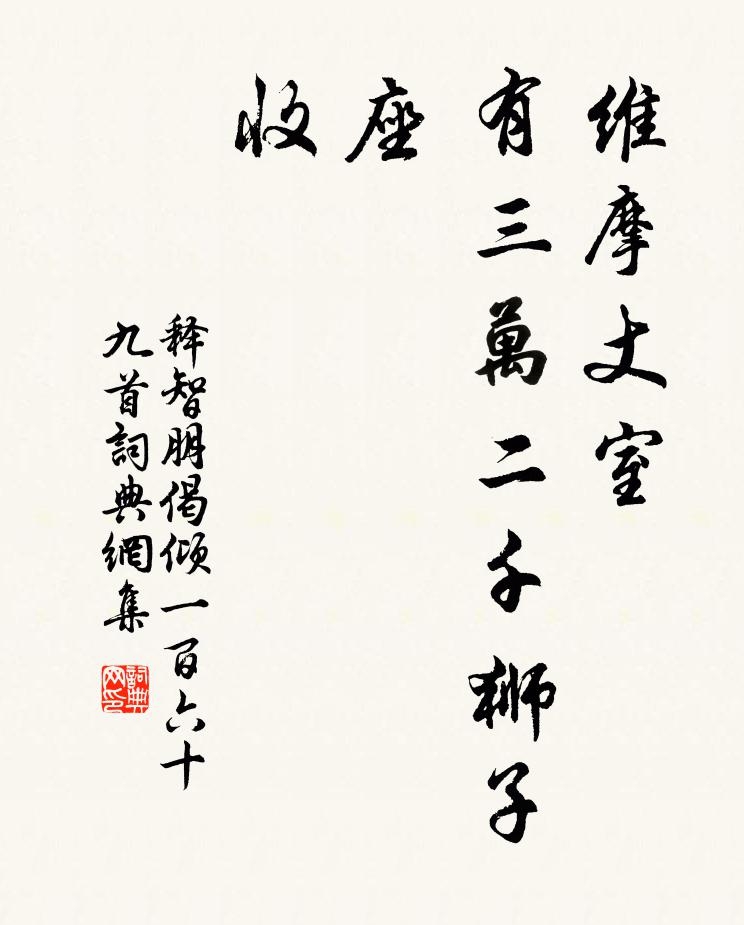 維摩丈室
有三萬二千獅子
座
收
释智朋偈倾一百六十
九首詞典網集
詞典网印